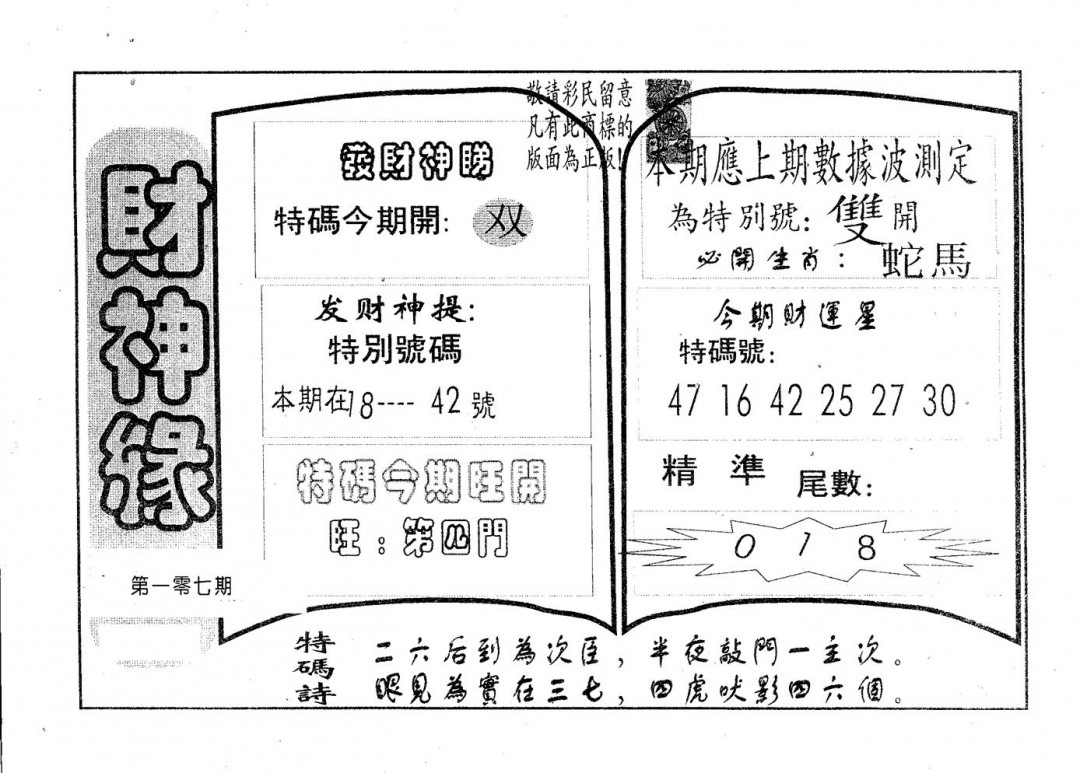 財神緣
第一零七期
敬請彩民留意
凡有此商標的
版面為正版!
發財神睇
特碼今期開: 双
发财神提:
特別號碼
本期在18---- 42號
特碼今期旺開
旺:第四門
本期應上期數據波測定
為特別號: 雙開
必開生肖: 蛇馬
今期財運星
特碼號:
47 16 42 25 27 30
精準 尾數:
0 1 8
特碼詩
二六后到為次臣,半夜敲門一主次。
眼見為實在三七,四虎吠影四六個。